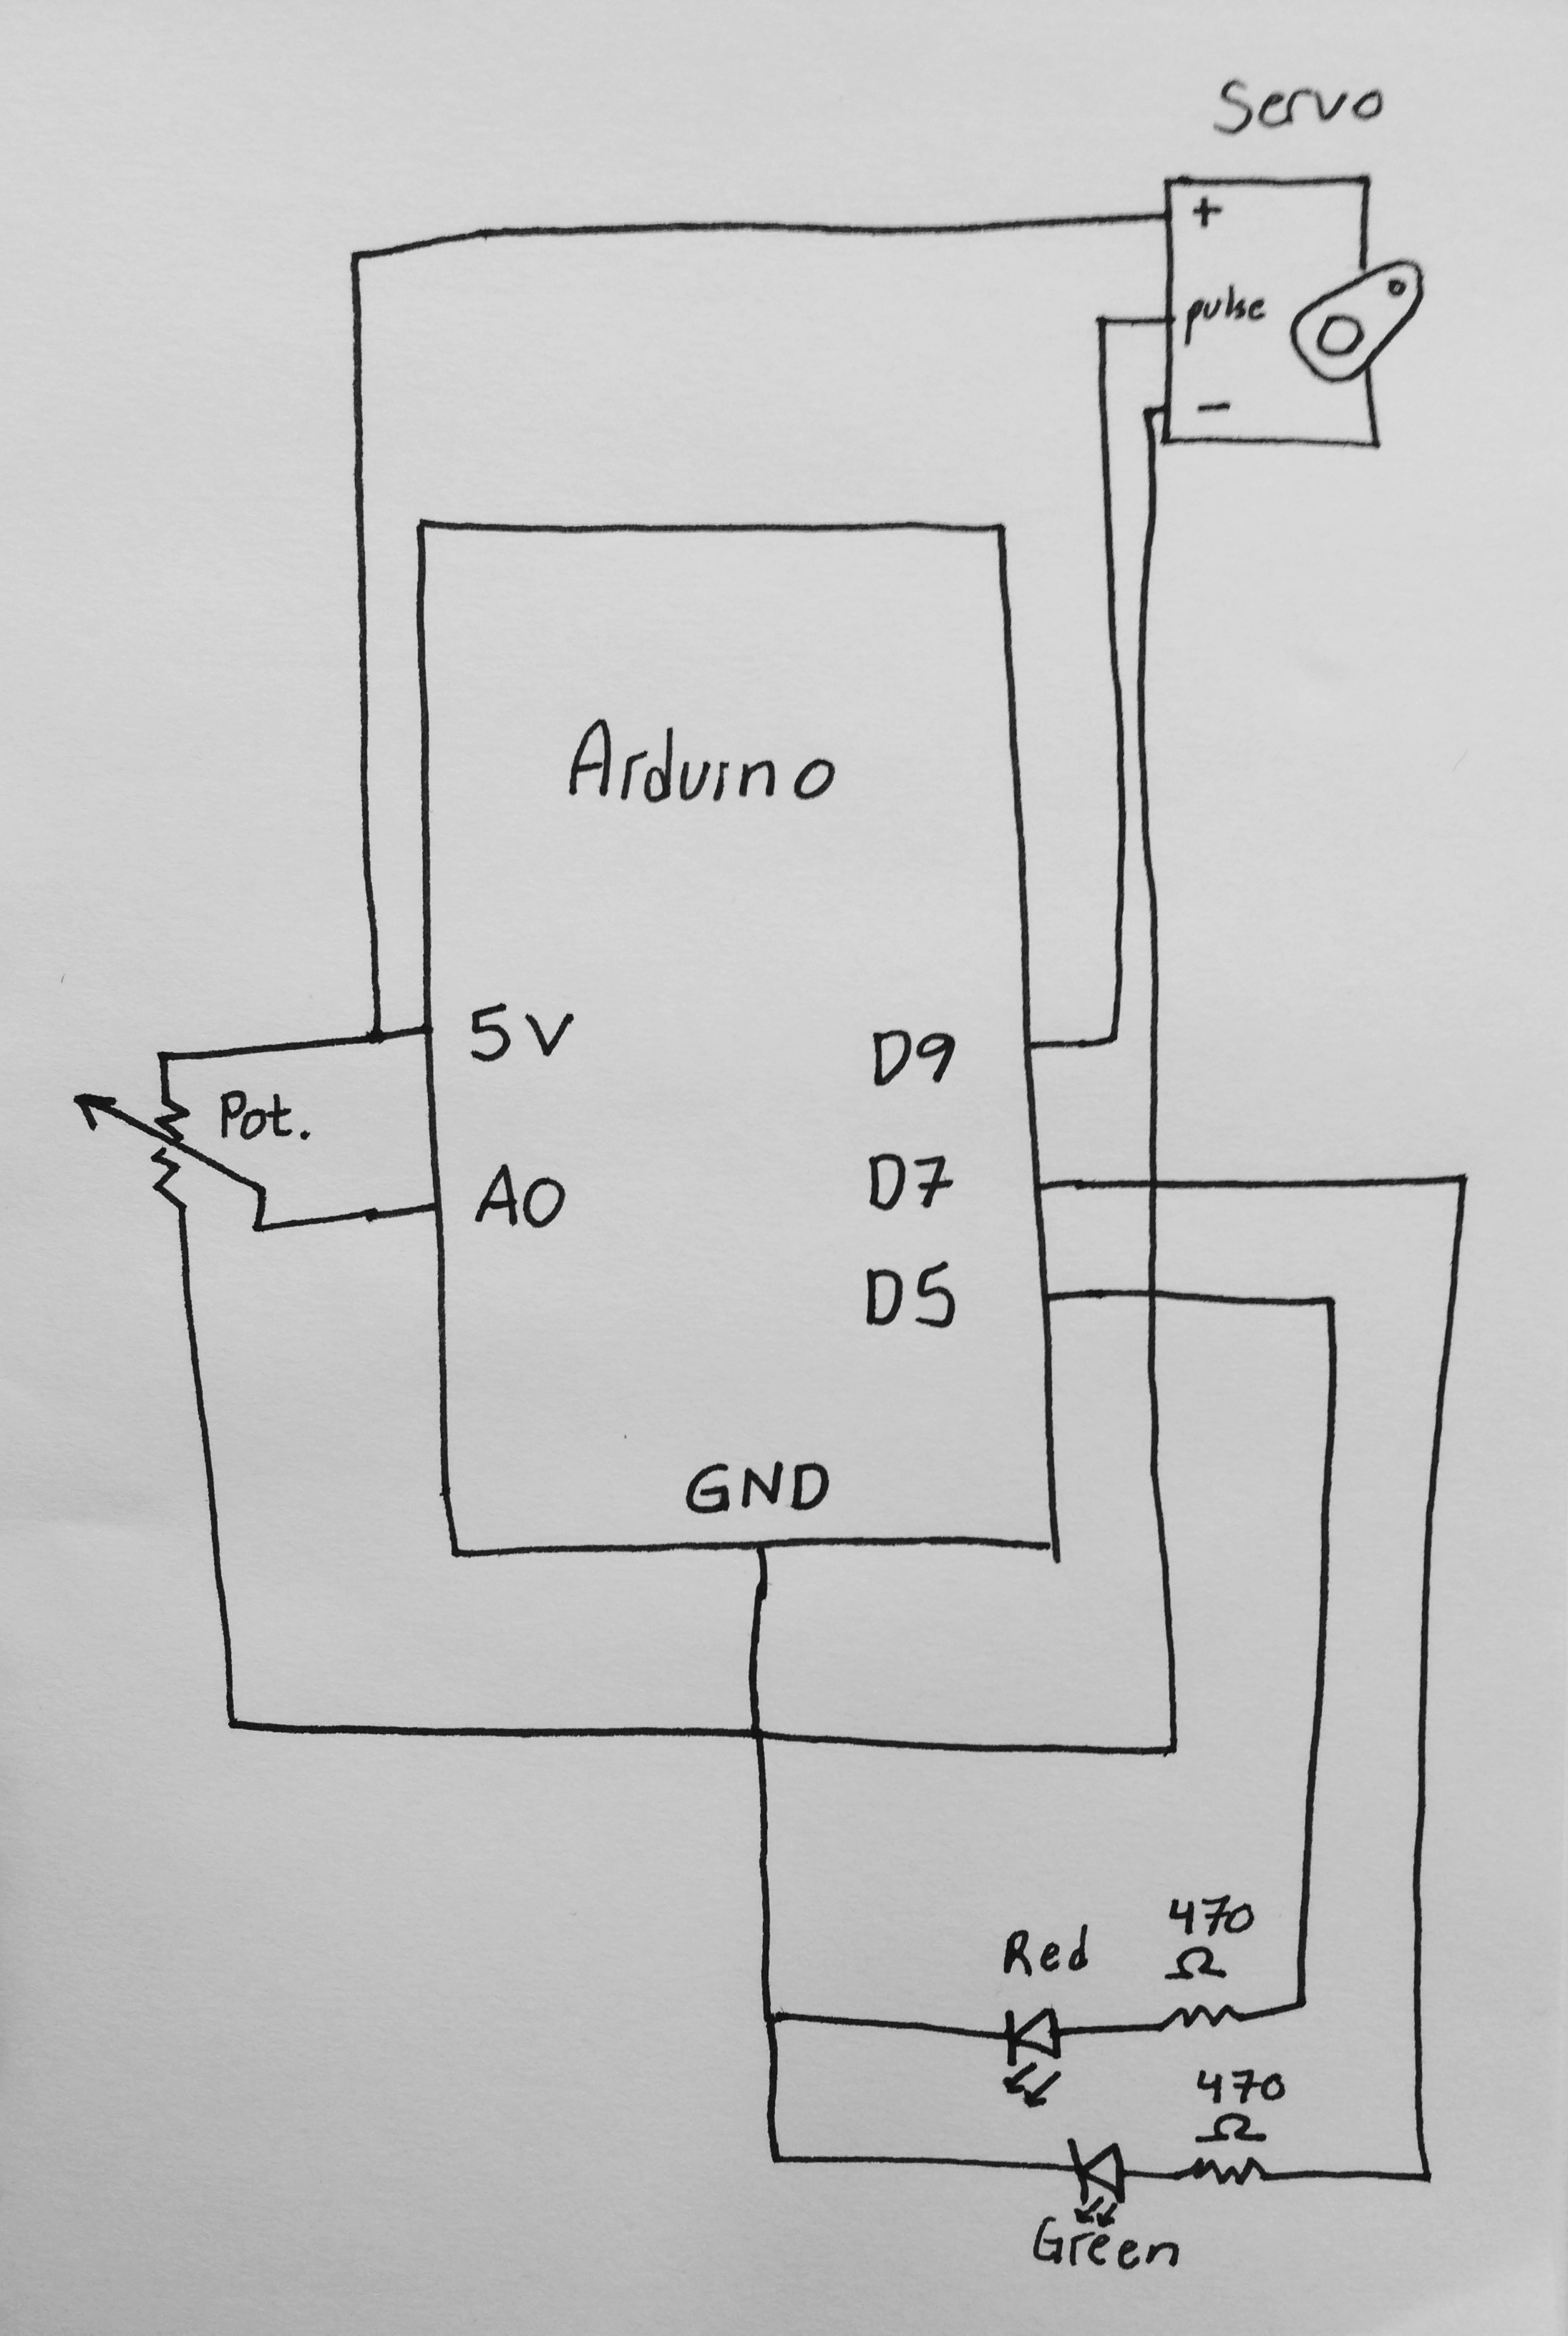 Servo
+
pulse
-
Arduino
5V
D9
Pot.
A0
D7
D5
GND
Red
470
Ω
470
Ω
Green